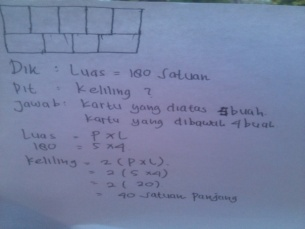 Dik : Luas = 180 satuan
Dit : Keliling ?
Jawab : Kartu yang diatas 5 buah
Kartu yang dibawah 4 buah
Luas = P x L
180 = 5 x 4
Keliling = 2 ( P x L )
= 2 ( 5 x 4 )
= 2 ( 20 )
= 40 satuan panjang